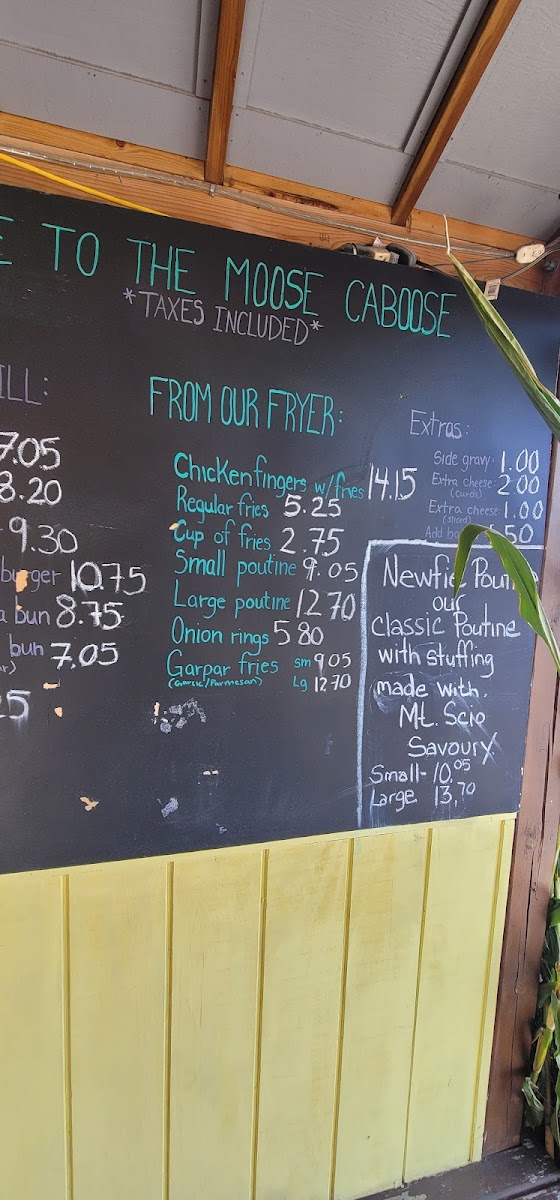 E TO THE MOOSE CABOOSE
*TAXES INCLUDED*
ILL:
7.05
8.20
9.30
burger 10.75
a bun 8.75
bun 7.05
25
FROM OUR FRYER:
Chicken fingers w/fries 14.15
Regular fries 5.25
Cup of fries 2.75
Small poutine 9.05
Large poutine 12 70
Onion rings 5 80
Garpar fries sm 9.05
(Garlic/Parmesan) Lg 12.70
Extras:
Side gravy: 1.00
Extra cheese: 2.00
(curds)
Extra cheese: 1.00
(sliced)
Add 50
Newfie
our
Classic Poutine
with stuffing
made with.
Mt. Scio
Savoury
Small- 10.05
Large 13.70